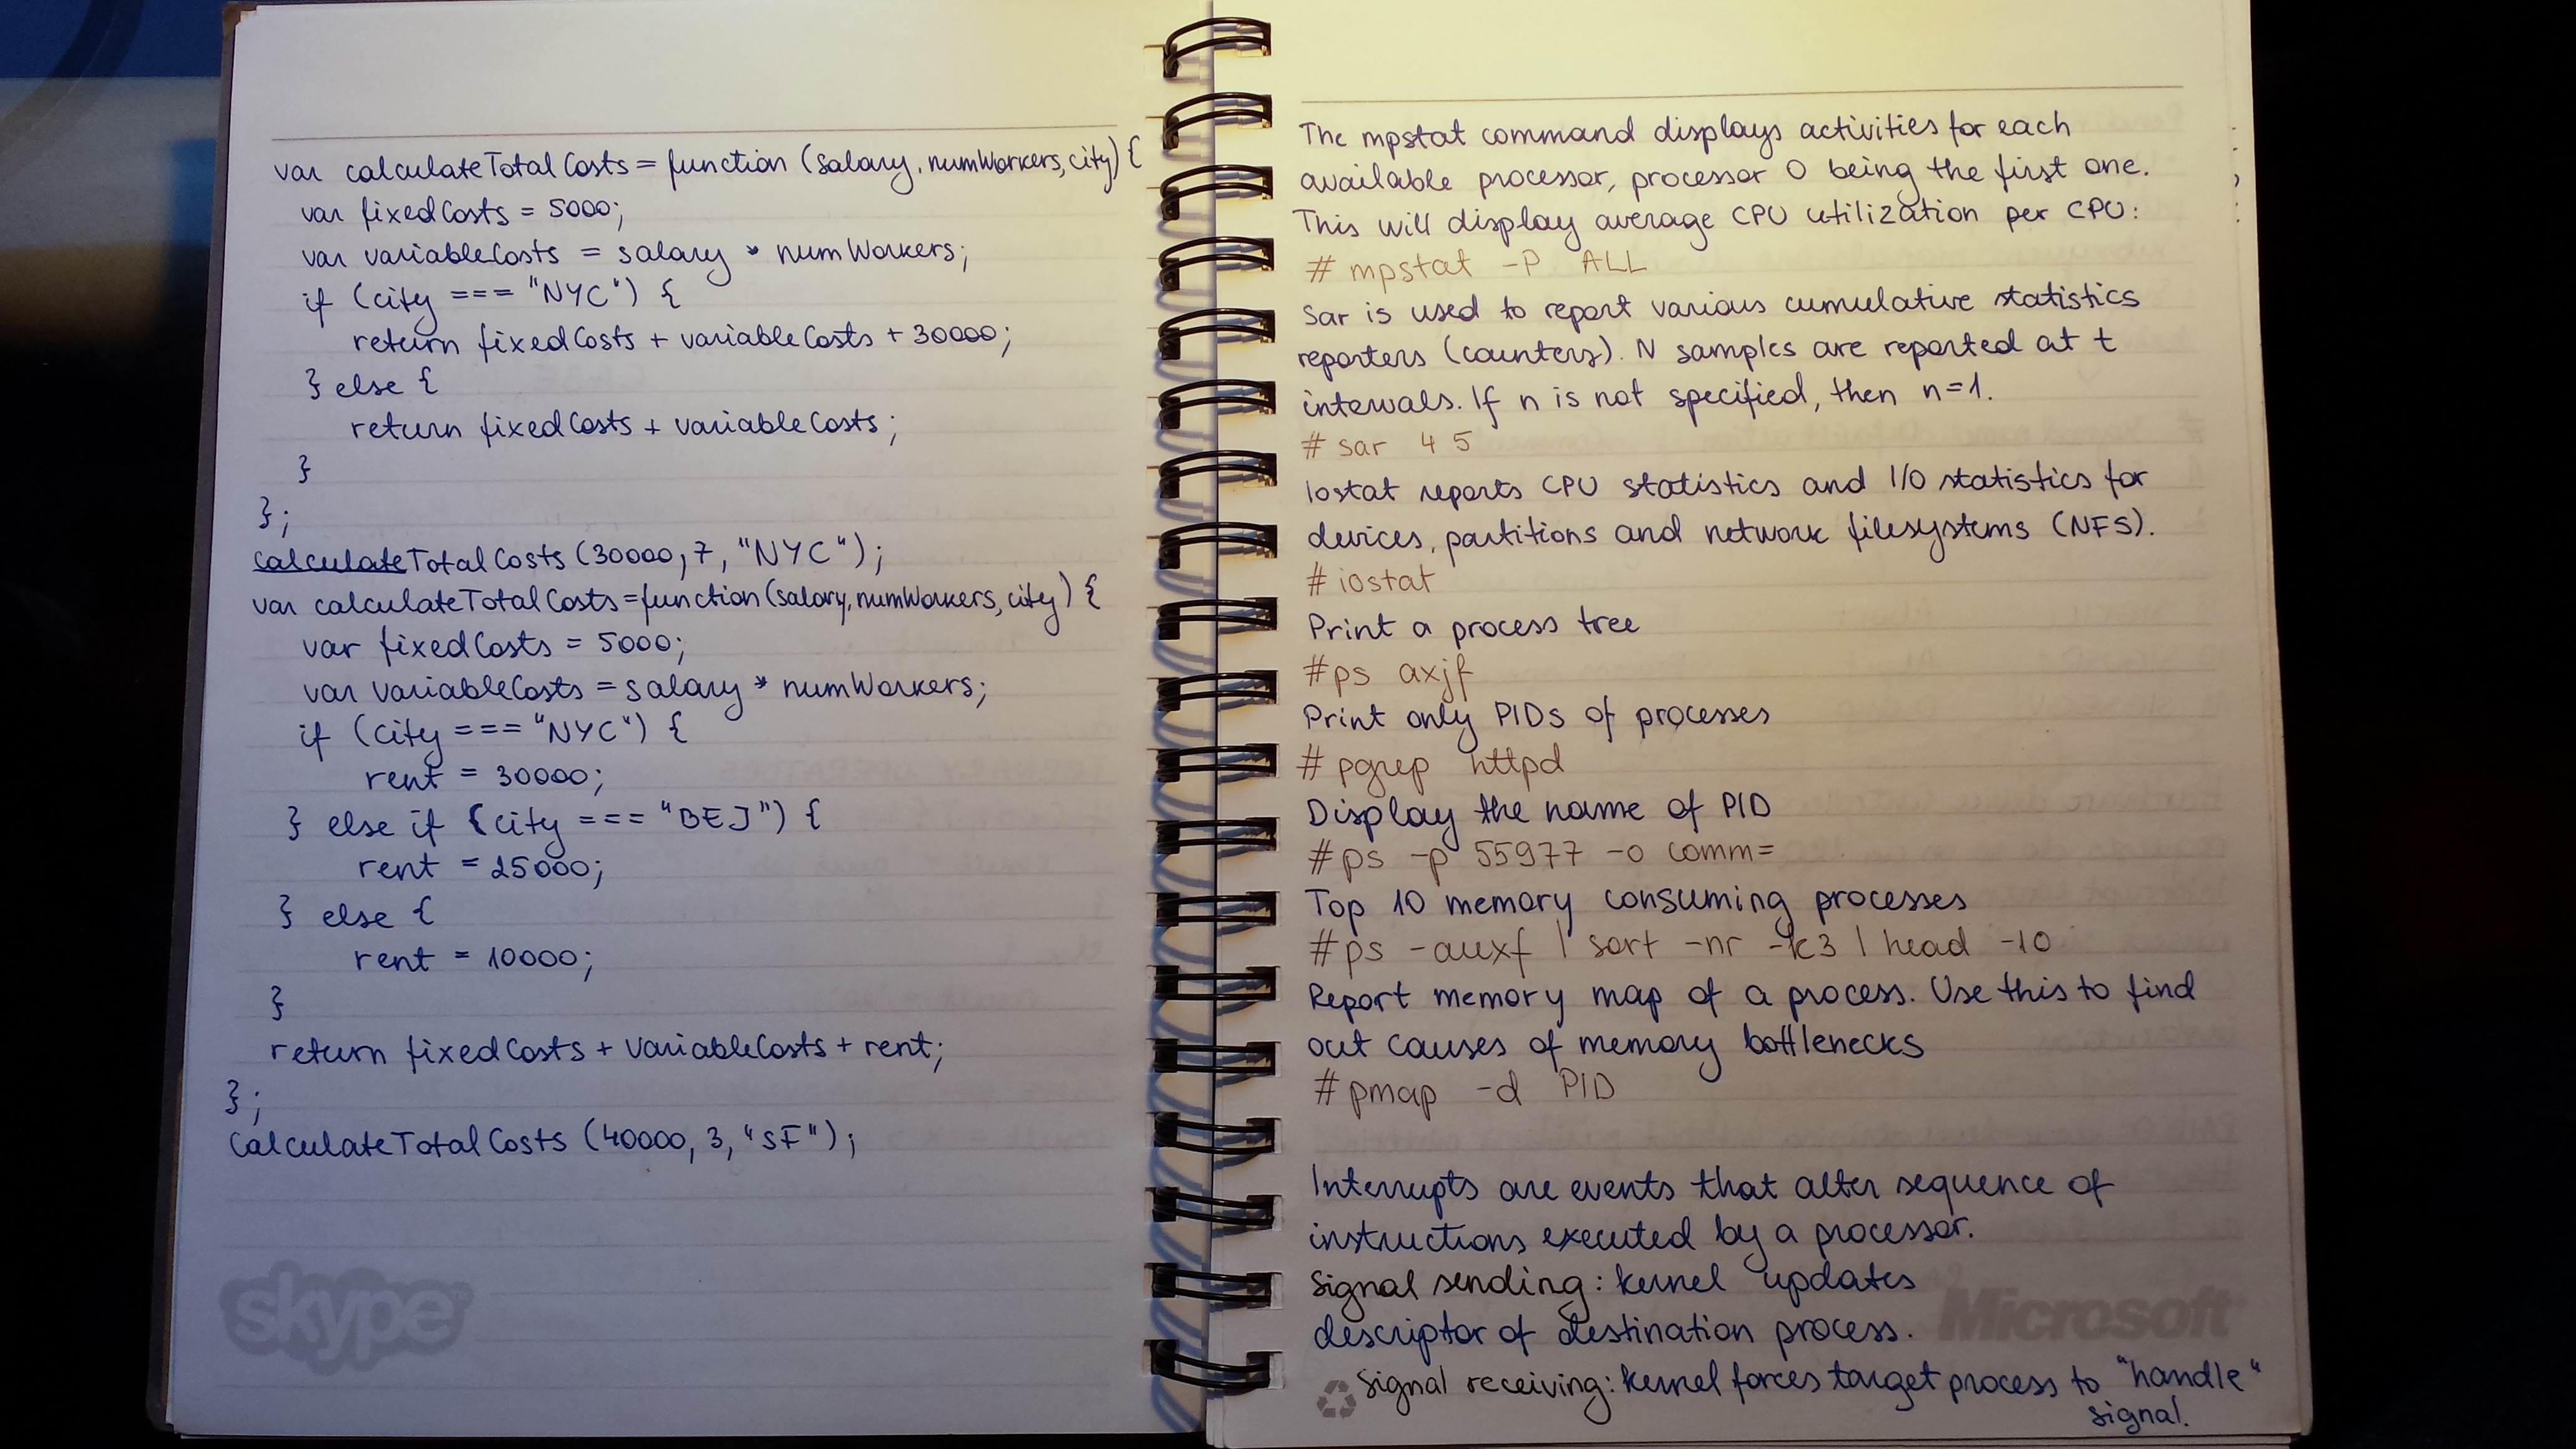 var calculateTotalCosts = function (salary, numWorkers, city) {
var fixedCosts = 5000;
var variableCosts = salary * numWorkers;
if (city === "NYC") {
return fixedCosts + variableCosts + 30000;
} else {
return fixedCosts + variableCosts;
}
};
calculateTotalCosts (30000, 7, "NYC");
var calculateTotalCosts = function (salary, numWorkers, city) {
var fixedCosts = 5000;
var variableCosts = salary * numWorkers;
if (city === "NYC") {
rent = 30000;
} else if (city === "BEJ") {
rent = 25000;
} else {
rent = 10000;
}
return fixedCosts + variableCosts + rent;
};
calculateTotalCosts (40000, 3, "SF");
skype
The mpstat command displays activities for each
available processor, processor 0 being the first one.
This will display average CPU utilization per CPU:
# mpstat -P ALL
Sar is used to report various cumulative statistics
reporters (counters). N samples are reported at t
intervals. If n is not specified, then n=1.
# sar 4 5
Iostat reports CPU statistics and I/O statistics for
devices, partitions and network filesystems (NFS).
# iostat
Print a process tree
#ps axjf
Print only PIDs of processes
# pgrep httpd
Display the name of PID
#ps -p 55977 -o comm=
Top 10 memory consuming processes
#ps -auxf | sort -nr -k3 | head -10
Report memory map of a process. Use this to find
out causes of memory bottlenecks
# pmap -d PID
Interrupts are events that alter sequence of
instructions executed by a processor.
Signal sending: kernel updates
descriptor of destination process.
Microsoft
Signal receiving: kernel forces target process to "handle"
signal.